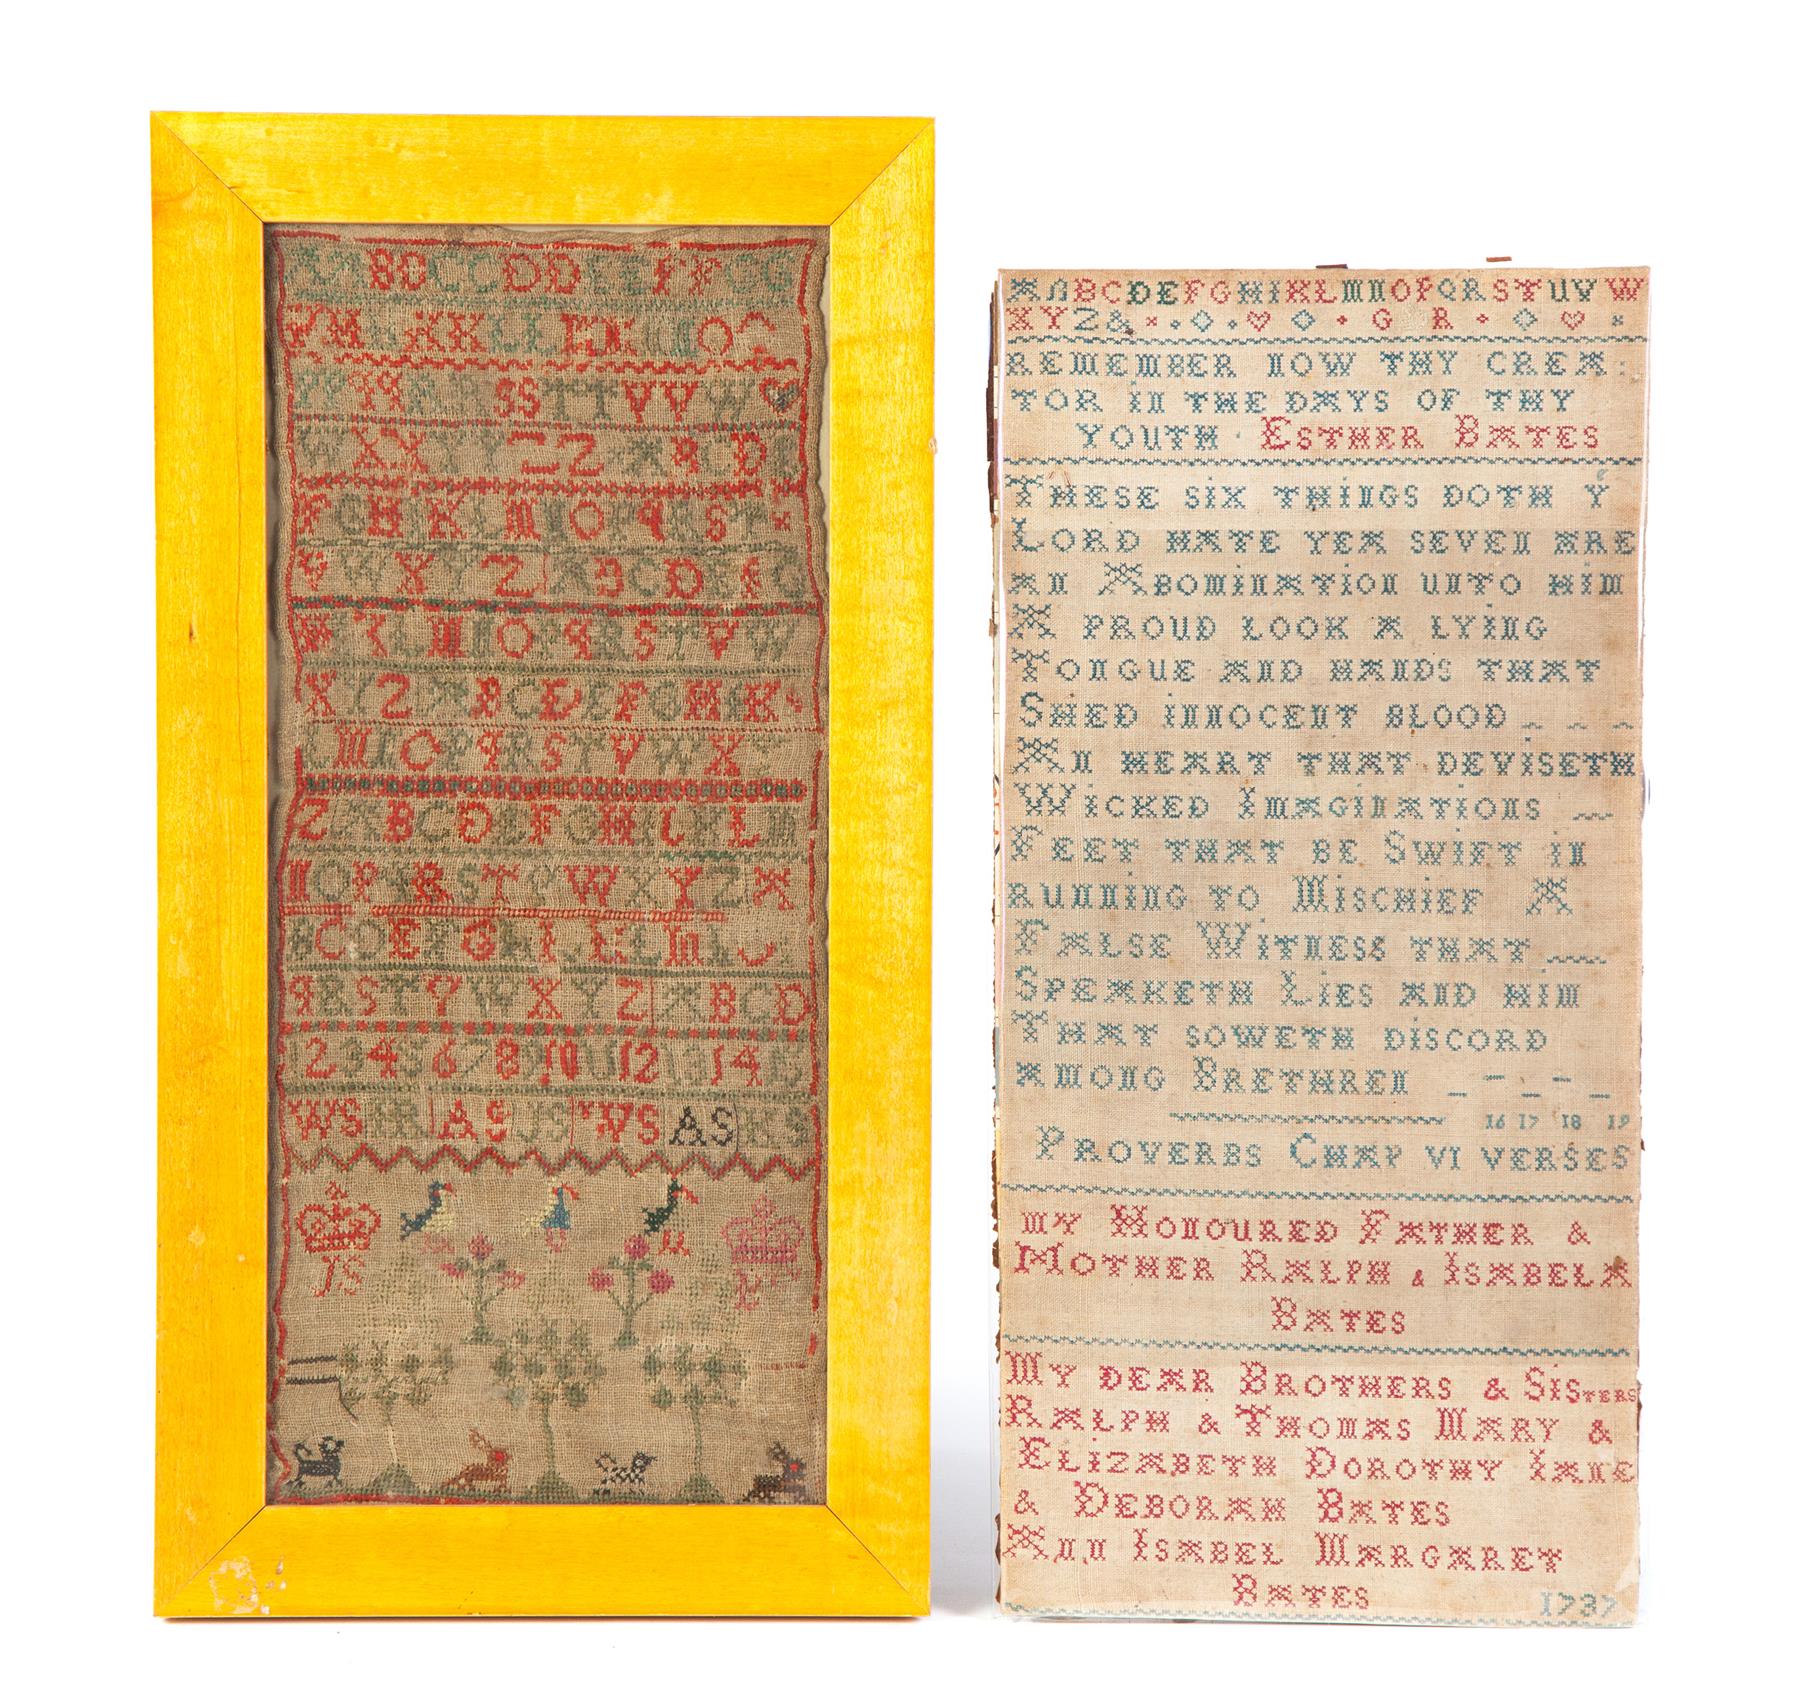 A A B B C C D D E E F F G G
K K L L
P P q q R R S S T T V V W
W X X Y Y Z Z A B C D E
F G H K L M O P q R S T
V W X Y Z A B C D E F G
K L M N O P q R S T V W
X Y Z A B C D E F G H I K
L M N O P q R S T V W X
Z A B C D E F G H I K L M
N O P q R S T V W X Y Z A
B C D E F G H I K L M
q R S T V W X Y Z A B C D
1 2 3 4 5 6 7 8 9 10 11 12 13 14
WS HR AS JS WS AS KS
JS
A A B C D E F G H I K L M N O P Q R S T U V W
X Y Z & G R
REMEMBER NOW THY CREA:
TOR IN THE DAYS OF THY
YOUTH · ESTHER BATES
THESE SIX THINGS DOTH Ye
LORD HATE YEA SEVEN ARE
AN ABOMINATION UNTO HIM
A PROUD LOOK A LYING
TONGUE AND HANDS THAT
SHED INNOCENT BLOOD
AN HEART THAT DEVISETH
WICKED IMAGINATIONS
FEET THAT BE SWIFT IN
RUNNING TO MISCHIEF A
FALSE WITNESS THAT
SPEAKETH LIES AND HIM
THAT SOWETH DISCORD
AMONG BRETHREN
16 17 18 19
PROVERBS CHAP VI VERSES
MY HONOURED FATHER &
MOTHER RALPH & ISABELA
BATES
MY DEAR BROTHERS & SISTERS
RALPH & THOMAS MARY &
ELIZABETH DOROTHY IANE
& DEBORAH BATES
ANN ISABEL MARGARET
BATES 1737